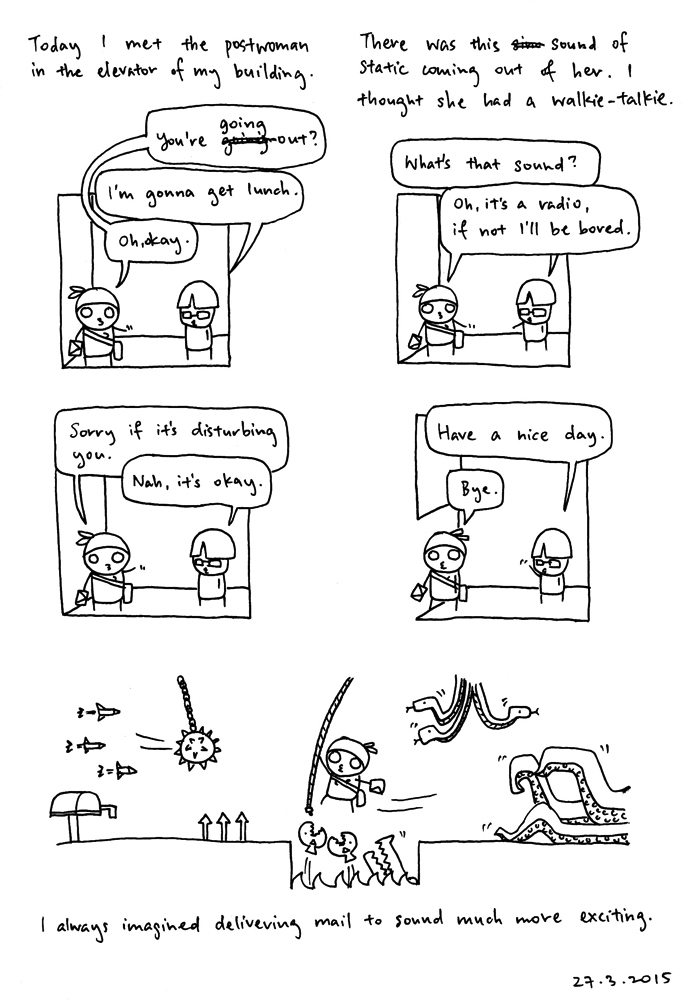 Today I met the postwoman
in the elevator of my building.
You're going out?
I'm gonna get lunch.
Oh, okay.
There was this sound of
static coming out of her. I
thought she had a walkie-talkie.
What's that sound?
Oh, it's a radio,
if not I'll be bored.
Sorry if it's disturbing
you.
Nah, it's okay.
Have a nice day.
Bye.
I always imagined delivering mail to sound much more exciting.
27.3.2015